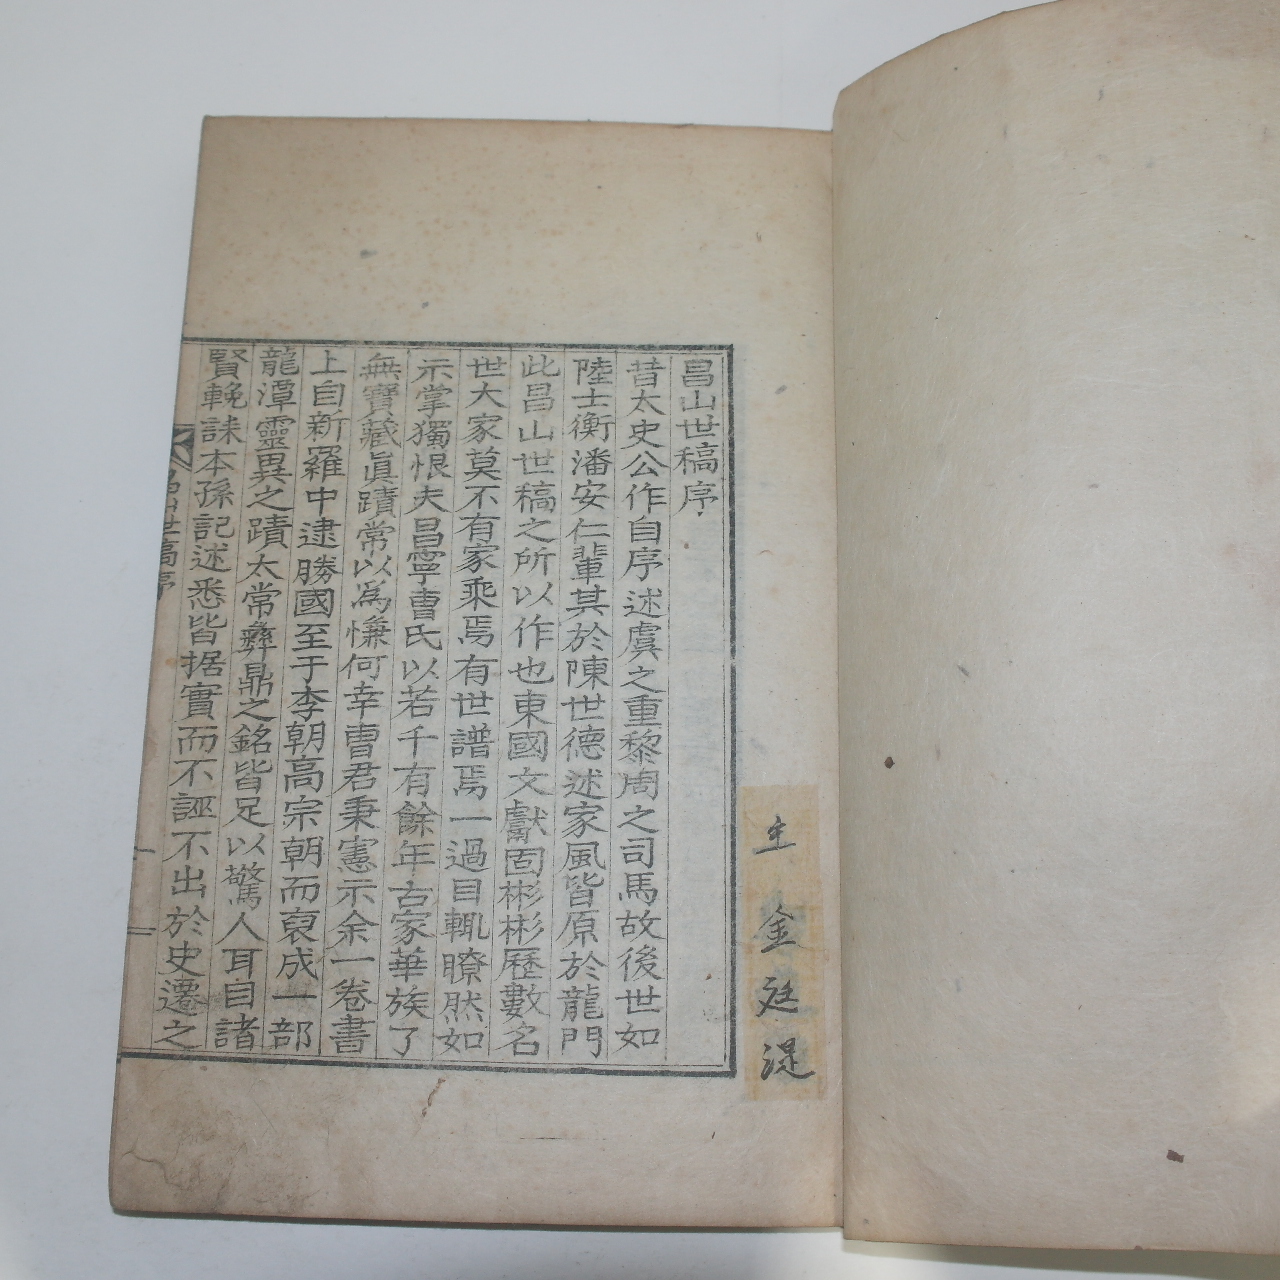 主 金廷湜
昌山世稿序
昔太史公作自序述虞之重黎周之司馬故後世如
陸士衡潘安仁輩其於陳世德述家風皆原於龍門
此昌山世稿之所以作也東國文獻固彬彬歷數名
世大家莫不有家乘焉有世譜焉一過目輒瞭然如
示掌獨恨夫昌寧曺氏以若千有餘年古家華族了
無寶藏眞蹟常以爲慊何幸曺君秉憲示余一卷書
上自新羅中逮勝國至于李朝高宗朝而裒成一部
龍潭靈異之蹟太常彝鼎之銘皆足以驚人耳目諸
賢輓誄本孫記述悉皆据實而不誣不出於史遷之
昌山世稿序